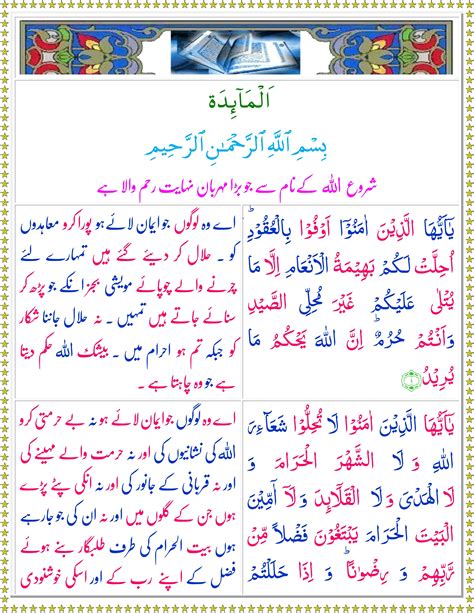 اَلْمَآئِدَة
بِسْمِ اللّٰهِ الرَّحْمٰنِ الرَّحِيْمِ
شروع اللہ کے نام سے جو بڑا مہربان نہایت رحم والا ہے
يٰۤاَيُّهَا الَّذِيْنَ اٰمَنُوْۤا اَوْفُوْا بِالْعُقُوْدِ ؕ
اُحِلَّتْ لَكُمْ بَهِيْمَةُ الْاَنْعَامِ اِلَّا مَا
يُتْلٰى عَلَيْكُمْ غَيْرَ مُحِلِّى الصَّيْدِ
وَاَنْتُمْ حُرُمٌ ؕ اِنَّ اللّٰهَ يَحْكُمُ مَا
يُرِيْدُ ﴿۱﴾
اے وہ لوگوں جو ایمان لائے ہو پورا کرو معاہدوں
کو ۔ حلال کر دیئے گئے ہیں تمہارے لئے
چرنے والے چوپائے مویشی بجز انکے جو پڑھ کر
سنائے جاتے ہیں تمہیں ۔ نہ حلال جاننا شکار
کو جبکہ تم ہو احرام میں ۔ بیشک اللہ حکم دیتا
ہے جو وہ چاہتا ہے ۔
يٰۤاَيُّهَا الَّذِيْنَ اٰمَنُوْا لَا تُحِلُّوْا شَعَآٮِٕرَ
اللّٰهِ وَ لَا الشَّهْرَ الْحَرَامَ وَ
لَا الْهَدْىَ وَ لَا الْقَلَآٮِٕدَ وَ لَاۤ آٰمِّيْنَ
الْبَيْتَ الْحَرَامَ يَبْتَغُوْنَ فَضْلًا مِّنْ
رَّبِّهِمْ وَ رِضْوَانًا ؕ وَ اِذَا حَلَلْتُمْ
اے وہ لوگوں جو ایمان لائے ہو نہ بے حرمتی کرو
اللہ کی نشانیوں کی اور نہ حرمت والے مہینے کی
اور نہ قربانی کے جانور کی اور نہ انکی پٹے پڑے
ہوں جن کے گلوں میں اور نہ ان کی جو جارہے
ہوں بیت الحرام کی طرف طلبگار بنے ہوئے
فضل کے اپنے رب کے اور اسکی خوشنودی